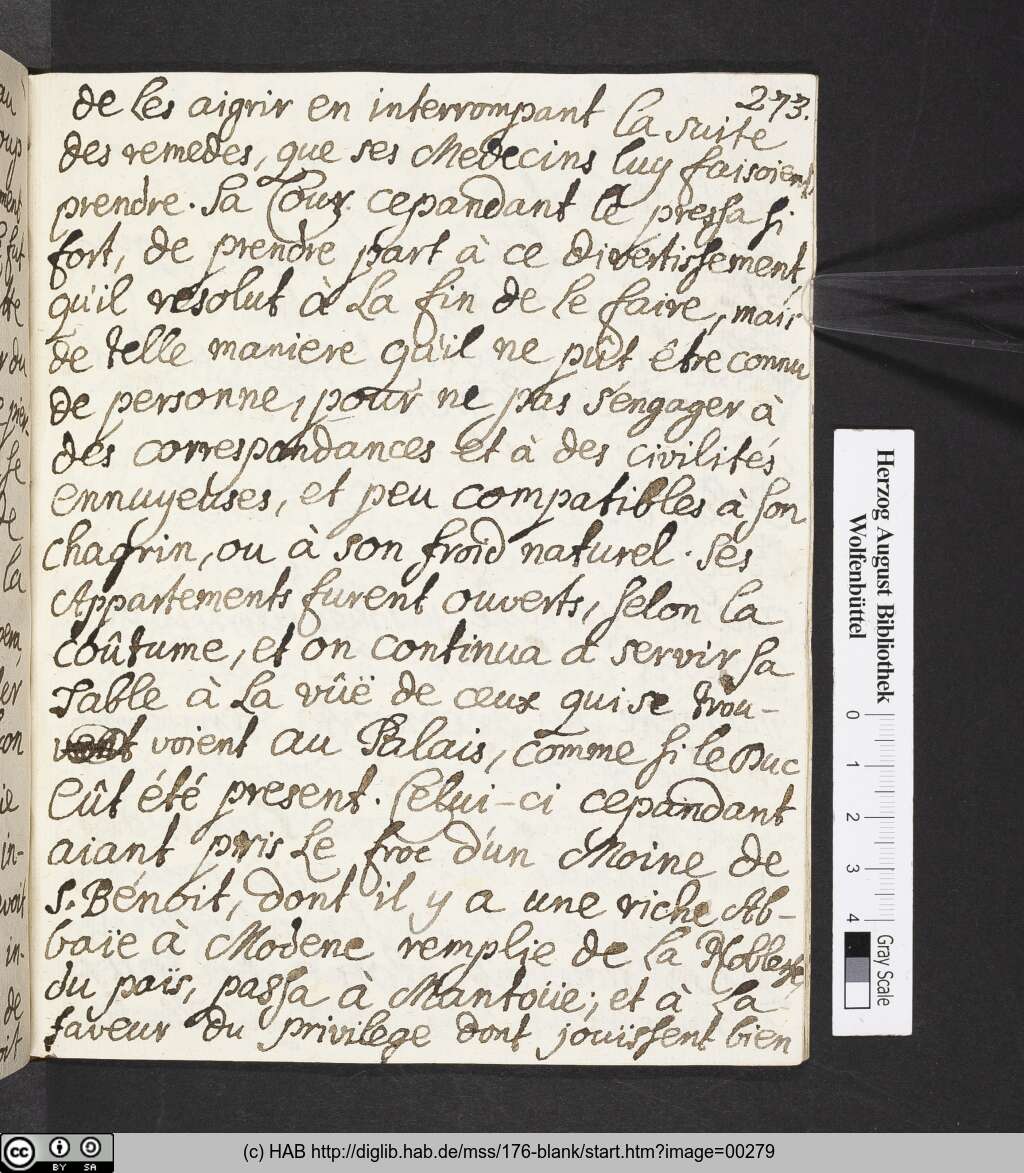 273.
de les aigrir en interrompant la suite
des remedes, que ses Medecins luy faisoient
prendre. Sa Cour cependant le pressa si
fort, de prendre part à ce divertissement,
qu'il resolut à la fin de le faire, mais
de telle maniere qu'il ne pût être connu
de personne, pour ne pas s'engager à
des correspondances et à des civilités
ennuyeuses, et peu compatibles à son
chagrin, ou à son froid naturel. Ses
Appartements furent ouverts, selon la
coûtume, et on continua a servir sa
Table à la vûë de ceux qui se trou-
voient au Palais, comme si le Duc
eût été present. Celui-ci cepandant
aiant pris le froc d'un Moine de
S. Bénoit, dont il y a une riche Ab-
baïe à Modene remplie de la Noblesse
du païs, passa à Mantoüe; et à la
faveur du privilege dont jouïssent bien
Herzog August Bibliothek
Wolfenbüttel
0 1 2 3 4
Gray Scale
(c) HAB http://diglib.hab.de/mss/176-blank/start.htm?image=00279
cc BY SA